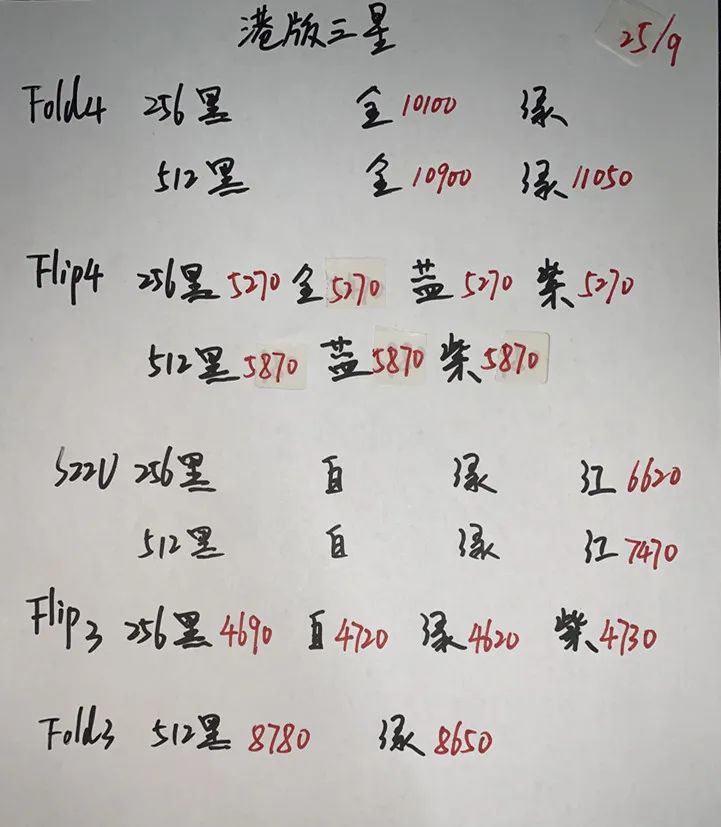 港版三星 25/9
Fold4 256黑 金10100 绿
512黑 金10900 绿11050
Flip4 256黑5270 金5270 蓝5270 紫5270
512黑5870 蓝5870 紫5870
S22U 256黑 白 绿 红6620
512黑 白 绿 红7470
Flip3 256黑4690 白4720 绿4620 紫4730
Fold3 512黑8780 绿8650